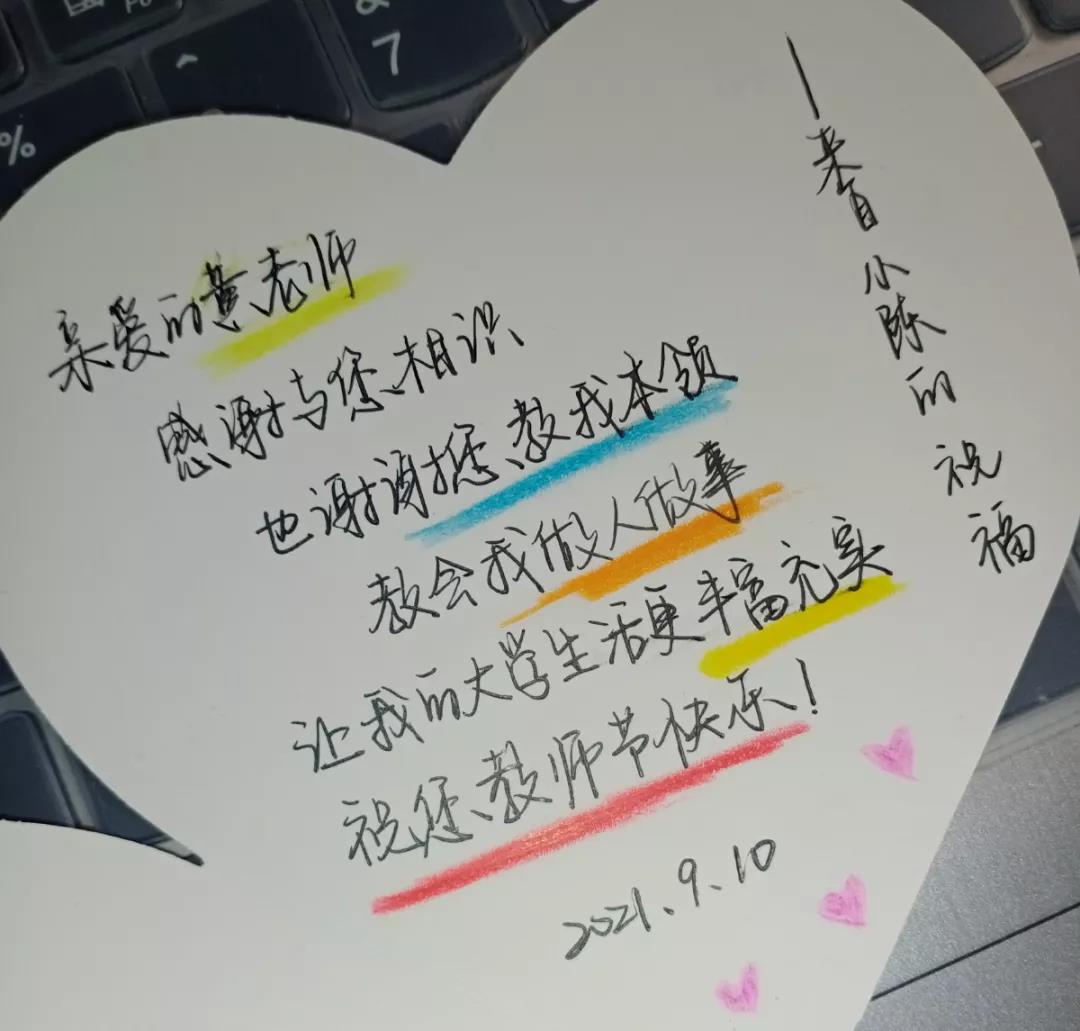 亲爱的黄老师
感谢与您相识
也谢谢您教我本领
教会我做人做事
让我的大学生活更丰富充实
祝您教师节快乐!
2021.9.10
—来自小陈的祝福
7
%